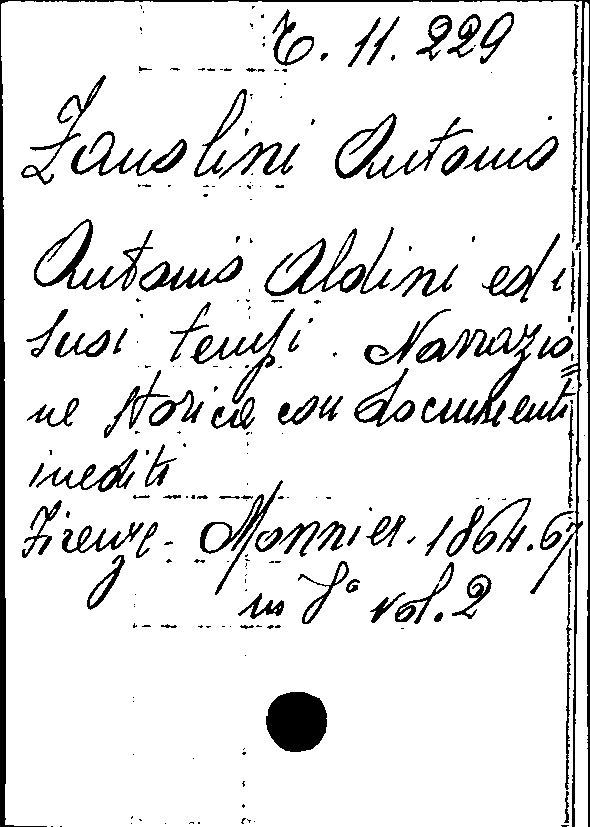 T. 11. 229
Zanolini Antonio
Antonio Aldini ed i
suoi tempi. Narrazio=
ne storica con documenti
inediti
Firenze. Monnier. 1864.67
in 8° vol. 2